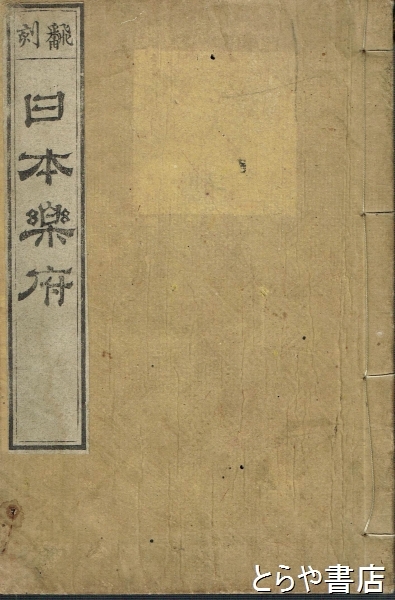 翻刻
日本樂府
とらや書店